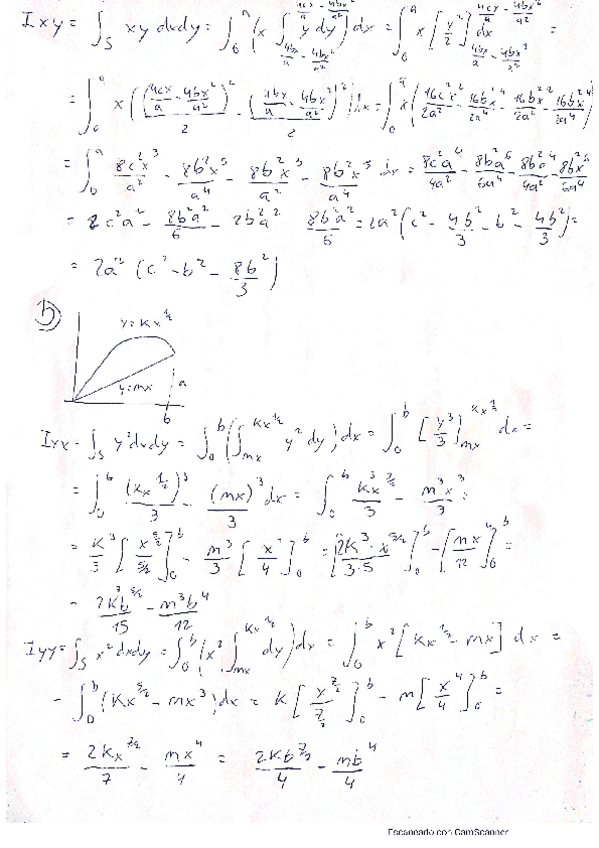 Ixy = ∫_S xy dxdy = ∫_0^a (x ∫_{4bx/a - 4bx²/a²}^{4cx/a - 4bx²/a²} y dy) dx = ∫_0^a x [y²/2]_{4bx/a - 4bx²/a²}^{4cx/a - 4bx²/a²} dx =
= ∫_0^a x
= ∫_0^a 8c²x³/a² - 8b²x⁵/a⁴ - 8b²x³/a² - 8b²x⁵/a⁴ dx = 8c²a⁴/4a² - 8b²a⁶/6a⁴ - 8b²a⁴/4a² - 8b²a⁶/6a⁴
= 2c²a² - 8b²a²/6 - 2b²a² 8b²a²/6 = 2a² (c² - 4b²/3 - b² - 4b²/3) =
= 2a² (c² - b² - 8b²/3)
b)
y = Kx^{1/2}
y = mx
a
b
Iyx = ∫_S y²dxdy = ∫_0^b (∫_{mx}^{Kx^{1/2}} y² dy) dx = ∫_0^b [y³/3]_{mx}^{Kx^{1/2}} dx =
= ∫_0^b (Kx^{1/2})³/3 - (mx)³/3 dx = ∫_0^b K³x^{3/2}/3 - m³x³/3 =
= K³/3 [x^{5/2}/5/2]_0^b - m³/3 [x⁴/4]_0^b = [2K³·x^{5/2}/3·5]_0^b - [mx⁴/12]_0^b =
= 2Kb^{5/2}/15 - m³b⁴/12
Iyy = ∫_S x² dxdy = ∫_0^b (x² ∫_{mx}^{Kx^{1/2}} dy) dx = ∫_0^b x² [Kx^{1/2} - mx] dx =
- ∫_0^b (Kx^{5/2} - mx³) dx = K [x^{7/2}/7/2]_0^b - m [x⁴/4]_0^b =
= 2Kx^{7/2}/7 - mx⁴/4 = 2Kb^{7/2}/4 - mb⁴/4
Escaneado con CamScanner